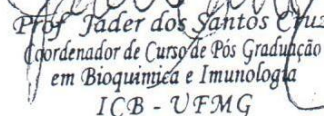 Prof. Jader dos Santos Cruz
Coordenador de Curso de Pós Graduação
em Bioquimica e Imunologia
ICB - UFMG